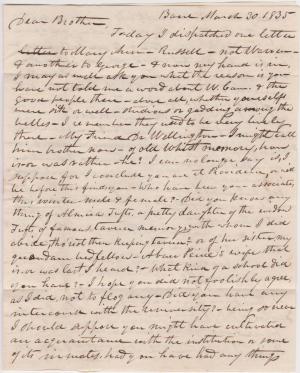 Dear Brother Barre March 30 1835
Today I dispatched one letter
letter to Mary Ann - Russell - not Warren -
& another to George - & now my hand is in,
I may as well ask you what the reason is you
have not told me a word about W. &
the good people there - alone
were - well - studious or gadding among the
belles - I remember they used to be
there - My Friend Dr Wellington - I might call
him brother now - of old memory, how
was rather - he! I can no longer say, I,
suppose for I conclude you are at
be before this finds you - Who have been your associates,
this winter - male & female? - Did you know any
thing of Almira Tufts - a pretty daughter of the
Tufts of famous tavern memory with whom I did
abide tavern? or of his sister my
- wife that
is, or was last I heard? - What kind of a school did
you have? - I hope you did not foolishly agree
as I did, not to flog any - Did you have any
intercourse with the University? - being so near
I should suppose you might have cultivated
an acquaintance with the institution or some
of its inmates, had you have had any thing